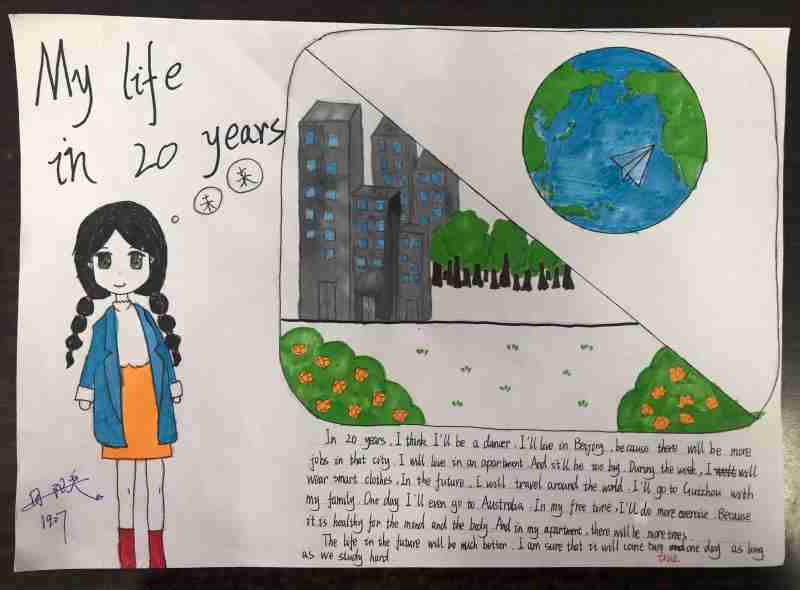 My life
in 20 years
未
来
1907
In 20 years, I think I'll be a dancer. I'll live in Beijing, because there will be more
jobs in that city. I will live in an apartment. And it'll be too big. During the week, I will
wear smart clothes. In the future, I will travel around the world. I'll go to Guizhou with
my family. One day I'll even go to Australia. In my free time, I'll do more exercise. Because
it is healthy for the mind and the body. And in my apartment, there will be more trees.
The life in the future will be much better. I am sure that it will come one day as long
true
as we study hard